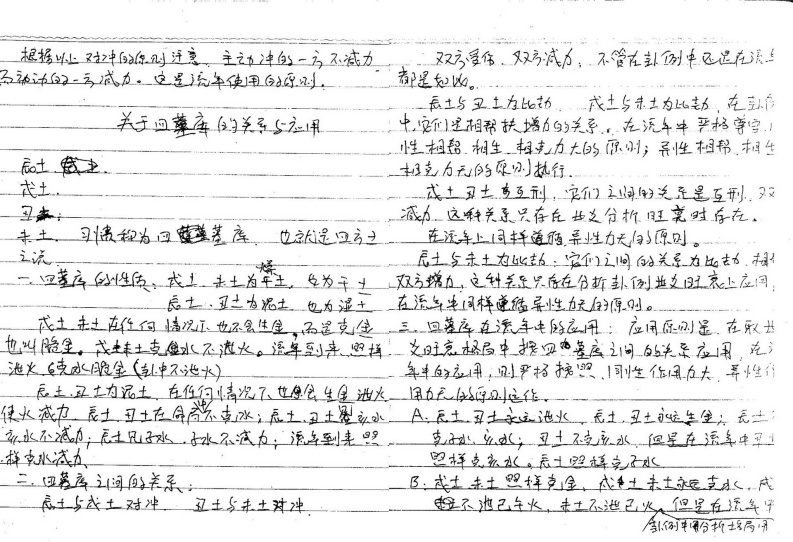 根据以上对冲的原则注意，主动冲的一方不减力
不动的一方减力。这是流年使用的原则.
关于四墓库的关系与应用
辰土
戌土.
丑土;
未土. 习惯称为四墓库. 也就是四方土
之说.
一. 四墓库的性质: 戌土. 未土为燥土, 也为干土
辰土. 丑土为泥土 也为湿土
戌土未土在任何情况下也不会生金, 而是克金
也叫脆金。戌未土克水不泄火。流年到来照样
泄火. 克水脆金(卦中不泄火)
辰土. 丑土为泥土, 在任何情况下也会生金泄火
使火减力. 辰土. 丑土在命局中不克水; 辰土. 丑土见亥水
亥水不减力; 辰土见子水. 子水不减力; 流年到来照
样克水减力.
二. 四墓库之间的关系:
辰土与戌土对冲. 丑土与未土对冲.
双方受伤. 双方减力, 不管在卦例中还是在流年
都是如此。
辰土与丑土为比劫. 戌土与未土为比劫, 在卦例
中, 它们是相帮扶增力的关系。在流年中严格遵守
性相帮. 相生. 相克力大的原则; 异性相帮. 相生
相克力无的原则执行.
戌土丑土为互刑, 它们之间的关系是互刑, 双
减力. 这种关系只存在此支分析旺衰时存在.
在流年上同样遵循异性力无的原则。
辰土与未土为比劫: 它们之间的关系为比劫,
双方增力, 这种关系只存在分析卦例此支旺衰上应用;
在流年中同样遵循异性力无的原则。
三. 四墓库在流年中的应用: 应用原则是, 在取
旺衰格局中按四墓库之间的关系应用, 在
年中的应用, 则严格按照. 同性作用力大, 异性作
用力无的原则运作.
A: 辰土. 丑土永远泄火, 辰土. 丑土永远生金; 辰土
克子水. 亥水; 丑土不克亥水. 但是在流年中丑土
照样克亥水。辰土照样克子水
B: 戌土未土照样克金, 戌土未土永远克水. 戌
土不泄巳午火, 未土不泄巳火. 但是在流年中
卦例中用分析格局用